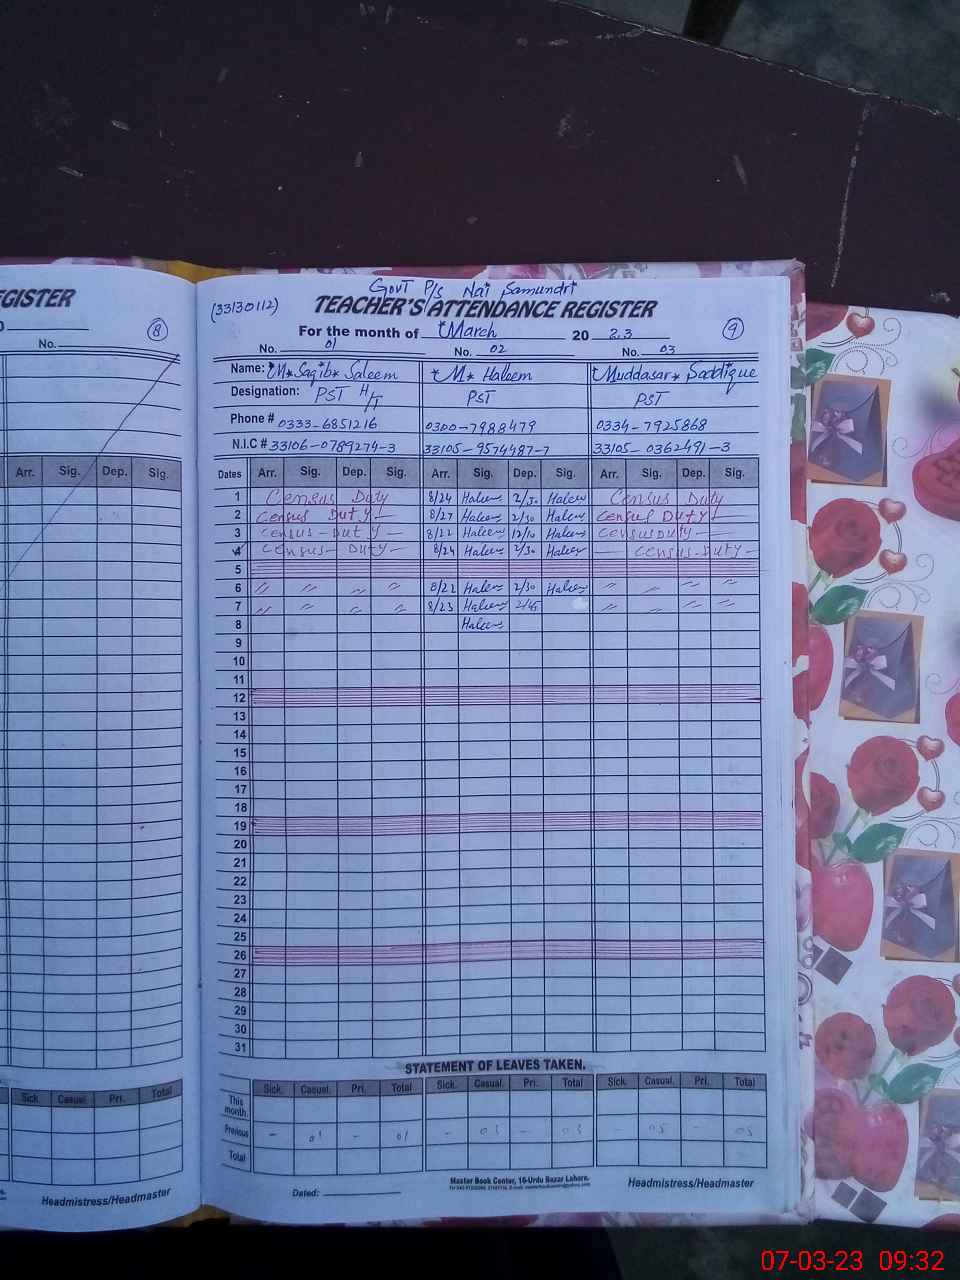 EGISTER
8
No.
Arr. Sig. Dep. Sig.
Sick. Casual. Pri. Total
Headmistress/Headmaster
Govt P/S Nai Samundri
(33130112) TEACHER'S ATTENDANCE REGISTER
For the month of March 2023 9
No. 01 No. 02 No. 03
Name: M. Saqib Saleem M. Haleem Muddasar Saddique
Designation: PST H/T PST PST
Phone # 0333-6851216 0300-7988479 0334-7925868
N.I.C # 33106-0789274-3 33105-9574487-7 33105-0362491-3
Dates Arr. Sig. Dep. Sig. Arr. Sig. Dep. Sig. Arr. Sig. Dep. Sig.
1 Census Duty 8/24 Haleem 2/30 Haleem Census Duty
2 Census Duty 8/27 Haleem 2/30 Haleem Census Duty
3 Census-Duty 8/22 Haleem 12/10 Haleem Census Duty
4 Census-Duty 8/24 Haleem 2/30 Haleem Census-Duty
5
6 〃 〃 〃 〃 8/22 Haleem 2/30 Haleem 〃 〃 〃 〃
7 〃 〃 〃 〃 8/23 Haleem 2/45 〃 〃 〃 〃
8 Haleem
9
10
11
12
13
14
15
16
17
18
19
20
21
22
23
24
25
26
27
28
29
30
31
STATEMENT OF LEAVES TAKEN.
Sick. Casual. Pri. Total Sick. Casual. Pri. Total Sick. Casual. Pri. Total
This month.
Previous - 01 - 01 - 03 - 03 - 05 - 05
Total
Dated: Master Book Center, 16-Urdu Bazar Lahore. Headmistress/Headmaster
07-03-23 09:32